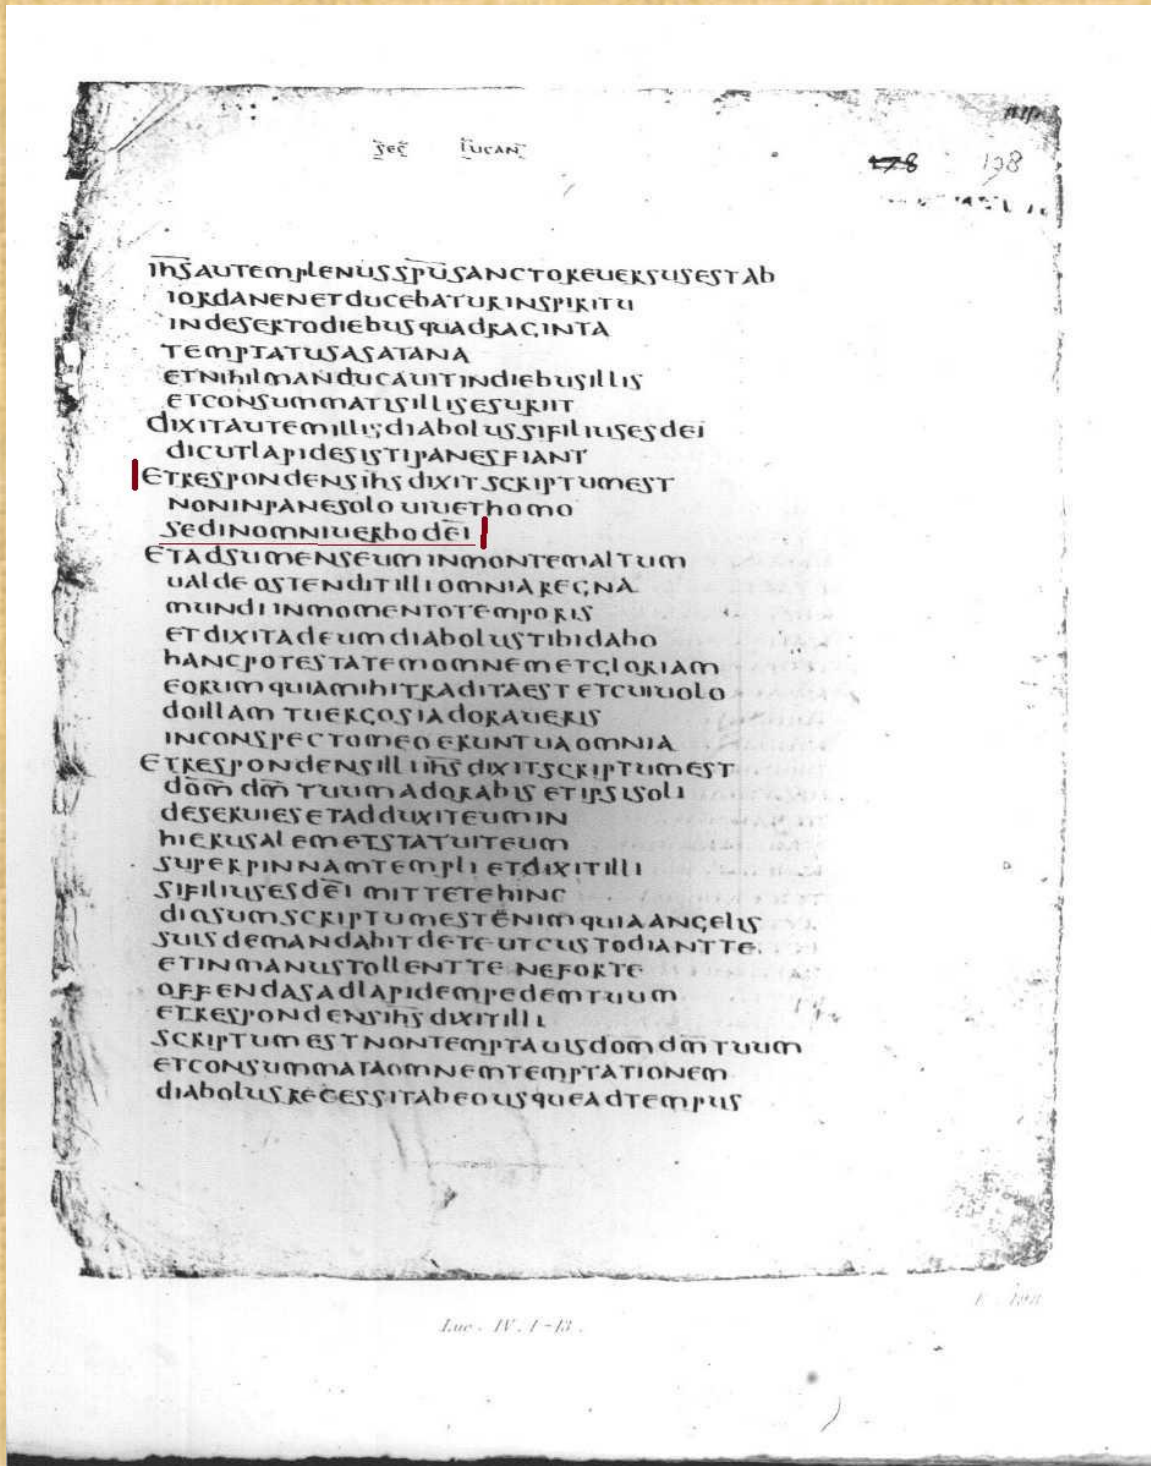 sec̄ lucan̄
178 198
ih̅s̅autemplenussp̅u̅sanctoreuersusestab
iordanenetducebaturinspiritu
indesertodiebusquadraginta
temptatusasatana
etnihilmanducauitindiebusillis
etconsummatisillisesuriit
dixitautemillisdiabolussifiliusesdei
dicutlapidesistipanesfiant
etrespondensih̅s̅dixitscriptumest
noninpanesolouiuethomo
sedinomniuerbodei̅
etadsumenseuminmontemaltum
ualdeostenditilliomniaregna
mundiinmomentotemporis
etdixitadeumdiabolustibidabo
hancpotestatemomnemetgloriam
eorumquiamihitraditaestetcuiuolo
doillamtuergosiadoraueris
inconspectomeoeruntuaomnia
etrespondensilliih̅s̅dixitscriptumest
dom̅dm̅tuumadorabisetipsisoli
deseruiesetadduxiteumin
hierusalemetstatuiteum
superpinnamtemplietdixitilli
sifiliusesdei̅mittetehinc
diosumscriptumestenimquiaangelis
suisdemandabitdeteutcustodiantte
etinmanustollentteneforte
offendasadlapidempedemtuum
etrespondensih̅s̅dixitilli
scriptumestnontemptauisdom̅dm̅tuum
etconsummataomnemtemptationem
diabolusrecessitabeousqueadtempus
Luc. IV. 1-13.